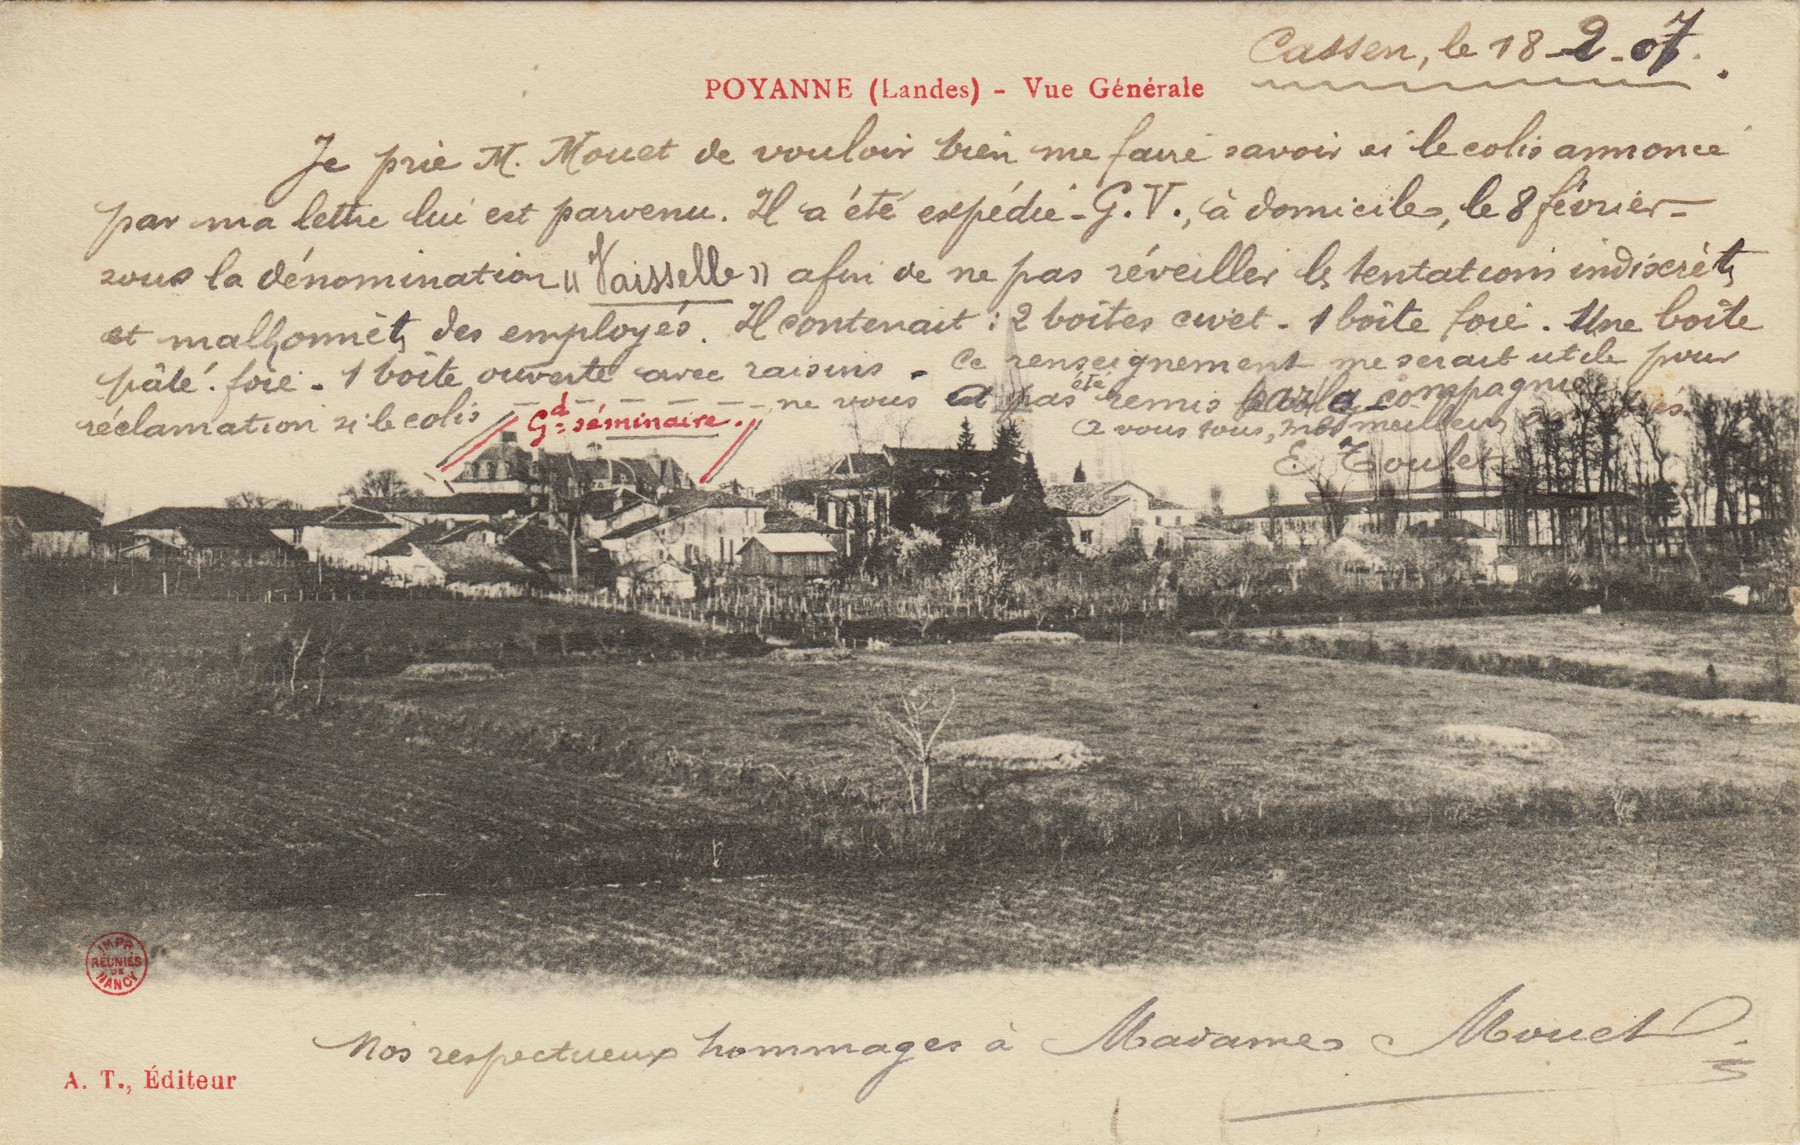 Cassen, le 18-2-07.
POYANNE (Landes) - Vue Générale
Je prie M. Mouet de vouloir bien me faire savoir si le colis annoncé
par ma lettre lui est parvenu. Il a été expédié - G.V., à domicile, le 8 février -
sous la dénomination "Vaisselle" afin de ne pas réveiller les tentations indiscrètes
et malhonnêtes des employés. Il contenait : 2 boîtes civet - 1 boîte foie. Une boîte
pâté foie - 1 boîte ouverte avec raisins - Ce renseignement me serait utile pour
réclamation si le colis ne vous a pas été remis par la compagnie
Gd séminaire.
à vous tous, mes meilleurs
E. Toulet
IMPR
RÉUNIES
DE
NANCY
Nos respectueux hommages à Madame Mouet
A. T., Éditeur